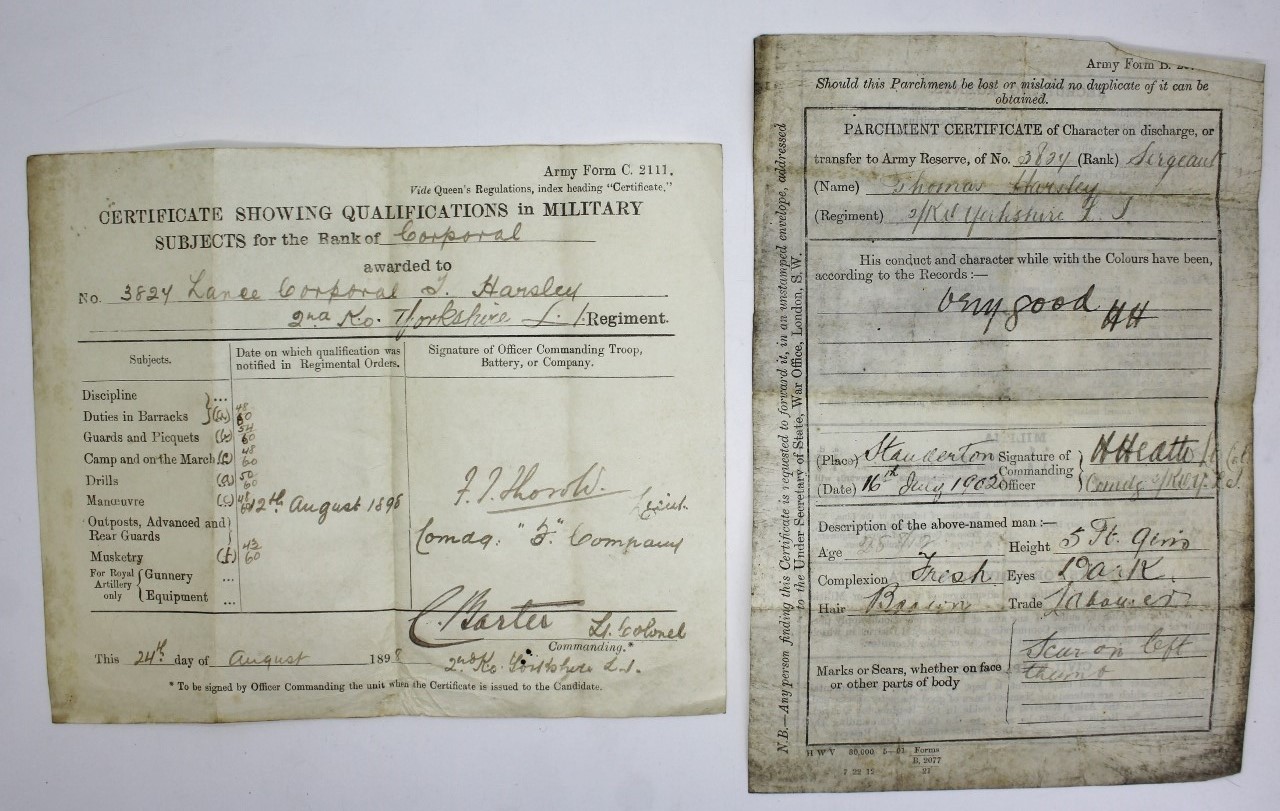 Army Form C. 2111.
Vide Queen's Regulations, index heading "Certificate."
CERTIFICATE SHOWING QUALIFICATIONS in MILITARY
SUBJECTS for the Rank of Corporal
awarded to
No. 3824 Lance Corporal T. Harsley
2nd Ko. Yorkshire L. I. Regiment.
Subjects.
Date on which qualification was
notified in Regimental Orders.
Signature of Officer Commanding Troop,
Battery, or Company.
Discipline ...
Duties in Barracks (a) 48/60
Guards and Picquets (b) 54/60
Camp and on the March (c) 48/60
Drills (d) 50/60
Manœuvre (e) 48/60 12th August 1898
Outposts, Advanced and
Rear Guards
Musketry (f) 43/60
For Royal
Artillery
only
Gunnery ...
Equipment ...
Lieut.
Comdg. "B" Company
C. Barter Lt. Colonel
Commanding.*
2nd Ko. Yorkshire L. I.
This 24th day of August 1898
* To be signed by Officer Commanding the unit when the Certificate is issued to the Candidate.
Army Form B.
Should this Parchment be lost or mislaid no duplicate of it can be
obtained.
PARCHMENT CERTIFICATE of Character on discharge, or
transfer to Army Reserve, of No. 3824 (Rank) Sergeant
(Name) Thomas Harsley
(Regiment) Yorkshire L. I
His conduct and character while with the Colours have been,
according to the Records :—
Very good HH
(Place) Standerton
Signature of
Commanding
Officer
(Date) 16th July 1902
Description of the above-named man :—
Age
Height 5 Ft. 9ins
Complexion Fresh Eyes Dark
Hair Brown Trade Labourer
Marks or Scars, whether on face
or other parts of body
Scar on left
thumb
H W V 80,000 5—01 Forms
B. 2077
21
7 22 12
N.B.—Any person finding this Certificate is requested to forward it, in an unstamped envelope, addressed
to the Under Secretary of State, War Office, London, S.W.